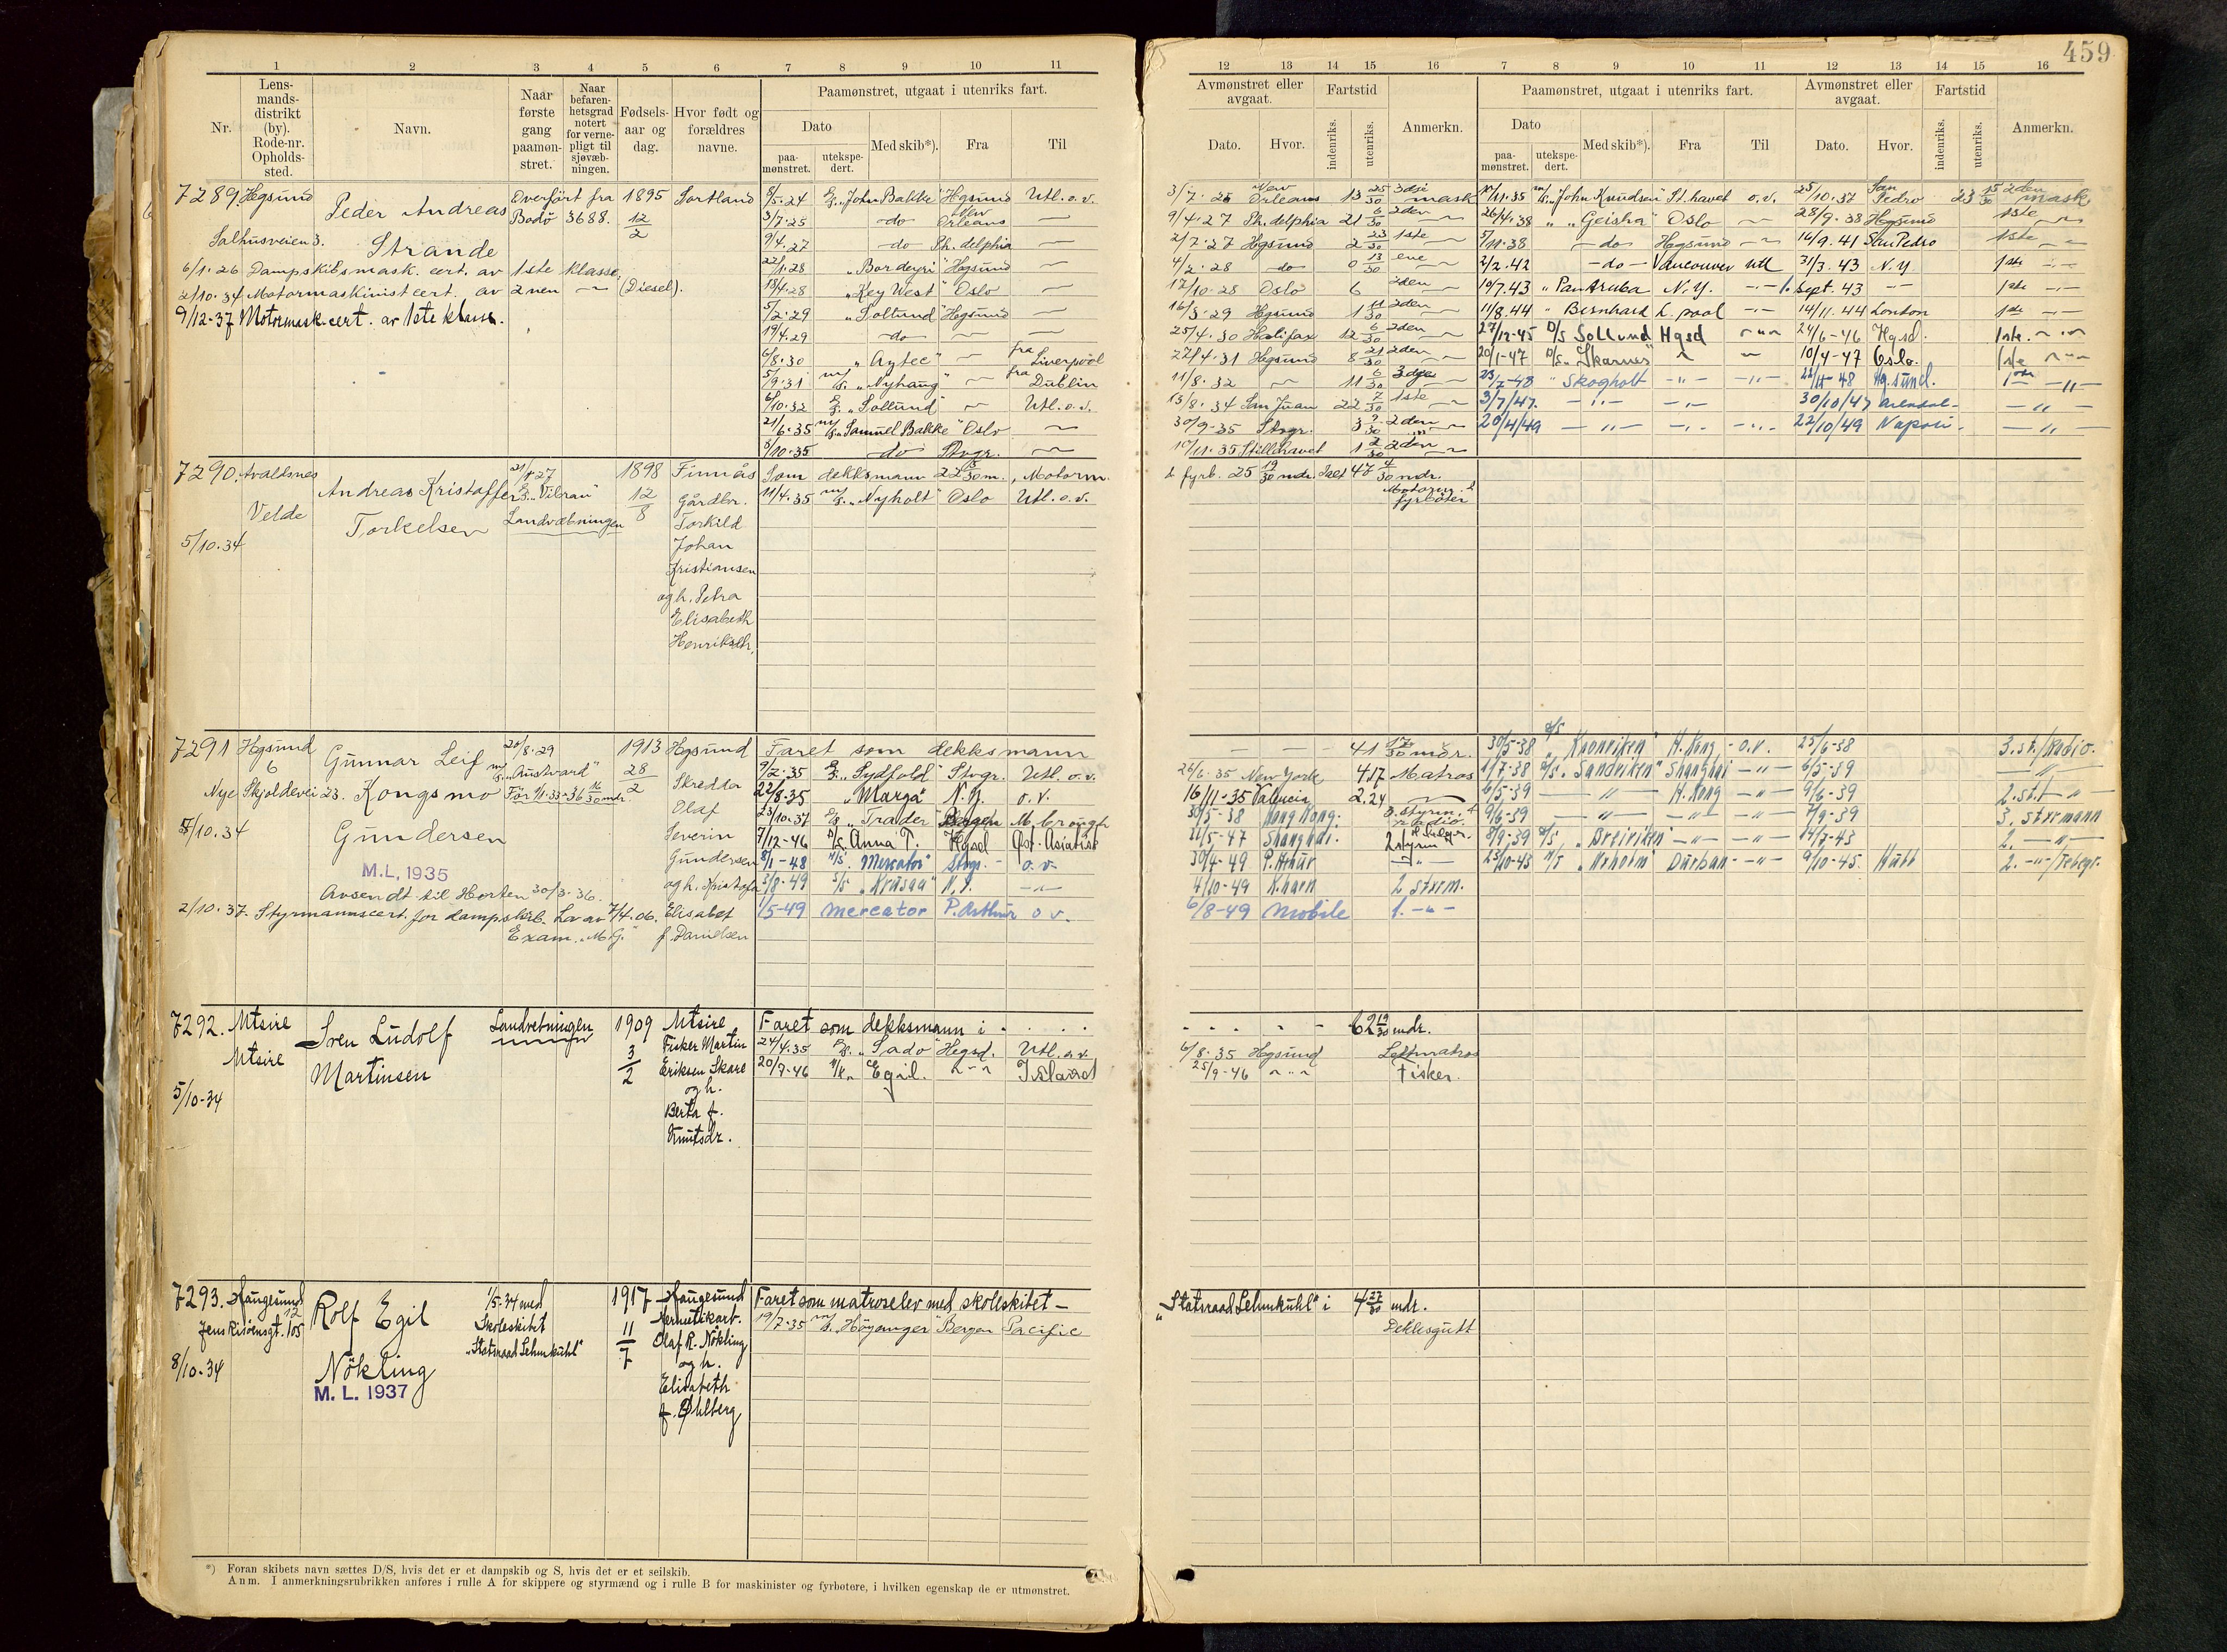 459
1 2 3 4 5 6 7 8 9 10 11
12 13 14 15 16 7 8 9 10 11 12 13 14 15 16
Nr.
Lens-
mands-
distrikt
(by).
Rode-nr.
Opholds-
sted.
Navn.
Naar
første
gang
paamøn-
stret.
Naar
befaren-
hetsgrad
notert
for verne-
pligt til
sjøvæb-
ningen.
Fødsels-
aar og
dag.
Hvor født og
forældres
navne.
Paamønstret, utgaat i utenriks fart.
Dato
paa-
mønstret.
utekspe-
dert.
Med skib*).
Fra
Til
Avmønstret eller
avgaat.
Dato.
Hvor.
Fartstid
indenriks.
utenriks.
Anmerkn.
Paamønstret, utgaat i utenriks fart.
Dato
paa-
mønstret.
utekspe-
dert.
Med skib*).
Fra
Til
Avmønstret eller
avgaat.
Dato.
Hvor.
Fartstid
indenriks.
utenriks.
Anmerkn.
7289. Hgsund
Peder Andreas
Strande
Salhusveien 3.
Overført fra
Bodø 3688.
1895
12/2
Sortland
6/1.26 Dampskibsmask. cert. av 1ste klasse,
2/10.34 Motormaskinistcert. av 2nen — (Diesel).
9/12-37 Motormask.cert. av 1ste klasse.
8/5.24 "John Bakke" Hgsund Utl. o.v.
3/7.25 — do — New Orleans —
9/4.27 — do — Ph. delphia —
22/1.28 "Bordeyri" Hgsund —
18/4.28 "Key West" Oslo —
5/2.29 "Solund" Hgsund —
19/4.29 — do — — —
6/8.30 "Aztec" — fra Liverpool
5/9.31 "Nyhaug" — fra Dublin
6/10.32 "Sollund" — Utl. o.v.
21/6.35 "Samuel Bakke" Oslo —
8/10.35 do Stvgr. —
3/7.25 New Orleans 13 25/30 3dje mask
9/4.27 Ph. delphia 21 6/30 2den —
2/7.27 Hgsund 2 23/30 1ste —
4/2.28 — do — 0 13/30 ene —
17/10-28 Oslo 6 2den —
16/3.29 Hgsund 1 11/30 2den —
25/4.30 Halifax 12 6/30 2den —
27/4.31 Hgsund 8 21/30 2den —
11/8.32 — 11 6/30 3dje —
13/8.34 San Juan 22 7/30 1ste —
30/9-35 Stvgr. 3 9/30 2den —
10/11.35 Stillehavet 1 2/30 2den —
10/11.35 "John Knudsen" St. havet o.v. 25/10.37 San Pedro 23 15/30 2den mask
26/4.38 " "Geisha" Oslo — 28/9.38 Hgsund 1ste —
5/11.38 — do — Hgsund — 16/9.41 San Pedro 1ste —
2/2.42 — do — Vancouver utl 31/3.43 N.Y. 1ste —
10/7.43 "Pan Aruba N.Y. — 1. sept. 43 — 1ste —
11/8.44 " Bernhard L. pool — 14/11.44 London 1ste —
27/12-45 D/S Sollund Hgsd — 24/6-46 Hgsd. 1ste. —
20/1-47 D/S "Skarnes" — — 10/4-47 Oslo. 1ste —
23/7-48 " Skogholt — — 22/11-48 Hg.sund. 1ste —
3/7/47. — — 30/10/47 Arendal — —
20/4/49 — — — — 22/10/49 Napoli —
7290. Avaldsnes
Velde
5/10.34
Andreas Kristoffer
Torkelsen
"Vibran"
Landvæbningen
1898
12/8
Finnås
Gårdbr.
Torkild
Johan
Kristiansen
og h. Petra
Elisabeth
Henriksdtr.
Som dekksmann 22 m., Motorm.
11/4.35 "Nyholt" Oslo Utl. o.v.
& fyrb. 25 19/30 mdr. Ialt 47 4/30 mdr.
Motorm. &
fyrbøter
7291 Hgsund
6
Nye Skjoldevei 23.
5/10.34
Gunnar Leif
Kongsmo
Gundersen
M.L. 1935
Avsendt til Horten 30/3-36.
2/10.37. Styrmannscert. for dampskib. Lov av 7/4.06.
Exam. "M.G."
20/8.29
"Austvard"
Før 1/1.33-36 16/30 mdr
1913
28/2
Hgsund
Skredder
Olaf
Severin
Gundersen
og h. Kristofa
Elisabet
f. Danielsen
Faret som dekksmann
9/2.35 "Sydfold" Stvgr. Utl. o.v.
22/8-35 "Marga" N.Y. o.v.
23/10.37 "Trader" Bergen M.brough
7/12-46 D/S Anna T. Hgsd Øst. Asiatisk
8/1-48 M/S. "Mercator" Stvgr. — o.v.
3/8-49 S/S "Krusaa" N.Y. —
1/5-49 Mercator P. Arthur o v.
— — — 41 17/30 mdr.
26/6.35 New York 4.17 Matros
16/11-35 Valencia 2.24 —
30/5-38 Hong Kong. 3. styrm. & radio.
21/5-47 Shanghai. 2 styrm & telegr.
30/4-49 P. Arthur — " —
4/10-49 K.havn 2 styrm.
6/8-49 Mobile 1. — " —
30/5-38 "Kronviken" H. Kong — o.v. 25/6-38 3. st./Radio.
1/7-38 "Sandviken" Shanghai — " — 6/5-39 — " —
6/5-39 — " — H. Kong — " — 9/6-39 2. st. — " —
9/6-39 — " — — " — — " — 7/9-39 3. styrmann
8/9.39 "Breiviken" — " — — " — 14/7-43 2. — " —
23/10-43 M/S "Norholm" Durban — " — 9/10-45. Hull 2. — " —/Telegr.
7292. Utsire
Utsire
5/10-34
Sven Ludolf
Martinsen
Landvebningen
1909
3/2
Utsire
Fisker Martin
Eriksen Skare
og h.
Berta f.
Knutsdr.
Faret som dekksmann i - . . .
24/4.35 "Sado" Hgsd. Utl. o.v.
20/7-46 M/K. Egil. — Island
- - - - - 62 19/30 mdr.
6/8.35 Hgsund Lettmatros
25/9-46 — Fisker.
7293. Haugesund
12
Jens Risøensgt. 105
8/10-34
Rolf Egil
Nökling
M. L. 1937
1/5-34 med
Skoleskibet
"Statsraad Lehmkuhl"
1917
11/7
Haugesund
Hermetikarb.
Olaf R. Nökling
og h.
Elisabeth
f. Øhlberg
Faret som matroselev med skoleskibet —
19/7.35 "Høyanger" Bergen Pacific
"Statsraad Lehmkuhl" i 4 27/30 mdr.
Dekksgutt
*) Foran skibets navn sættes D/S, hvis det er et dampskib og S, hvis det er et seilskib.
Anm. I anmerkningsrubrikken anføres i rulle A for skippere og styrmænd og i rulle B for maskinister og fyrbøtere, i hvilken egenskap de er utmønstret.